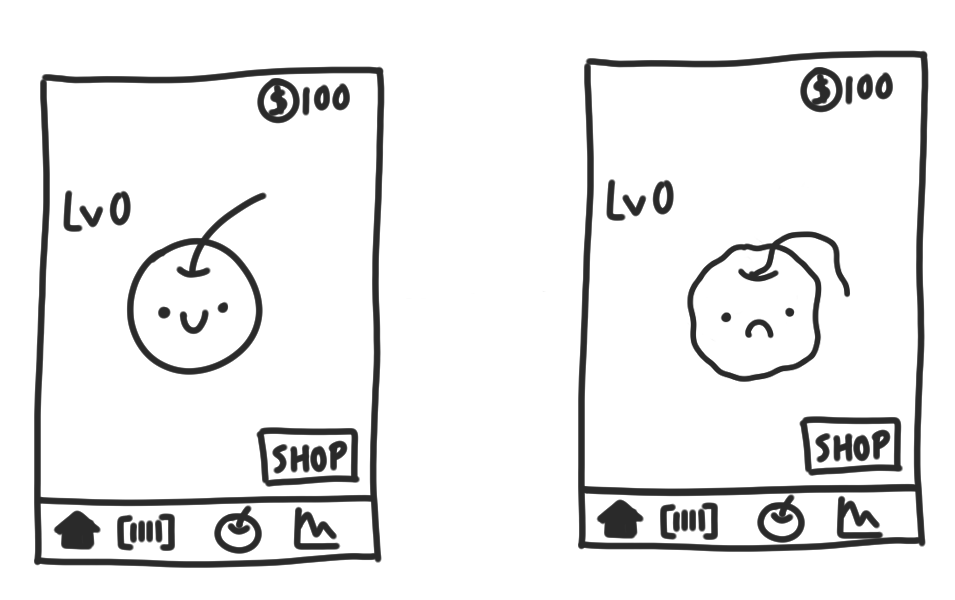 $100
Lv 0
SHOP
$100
Lv 0
SHOP